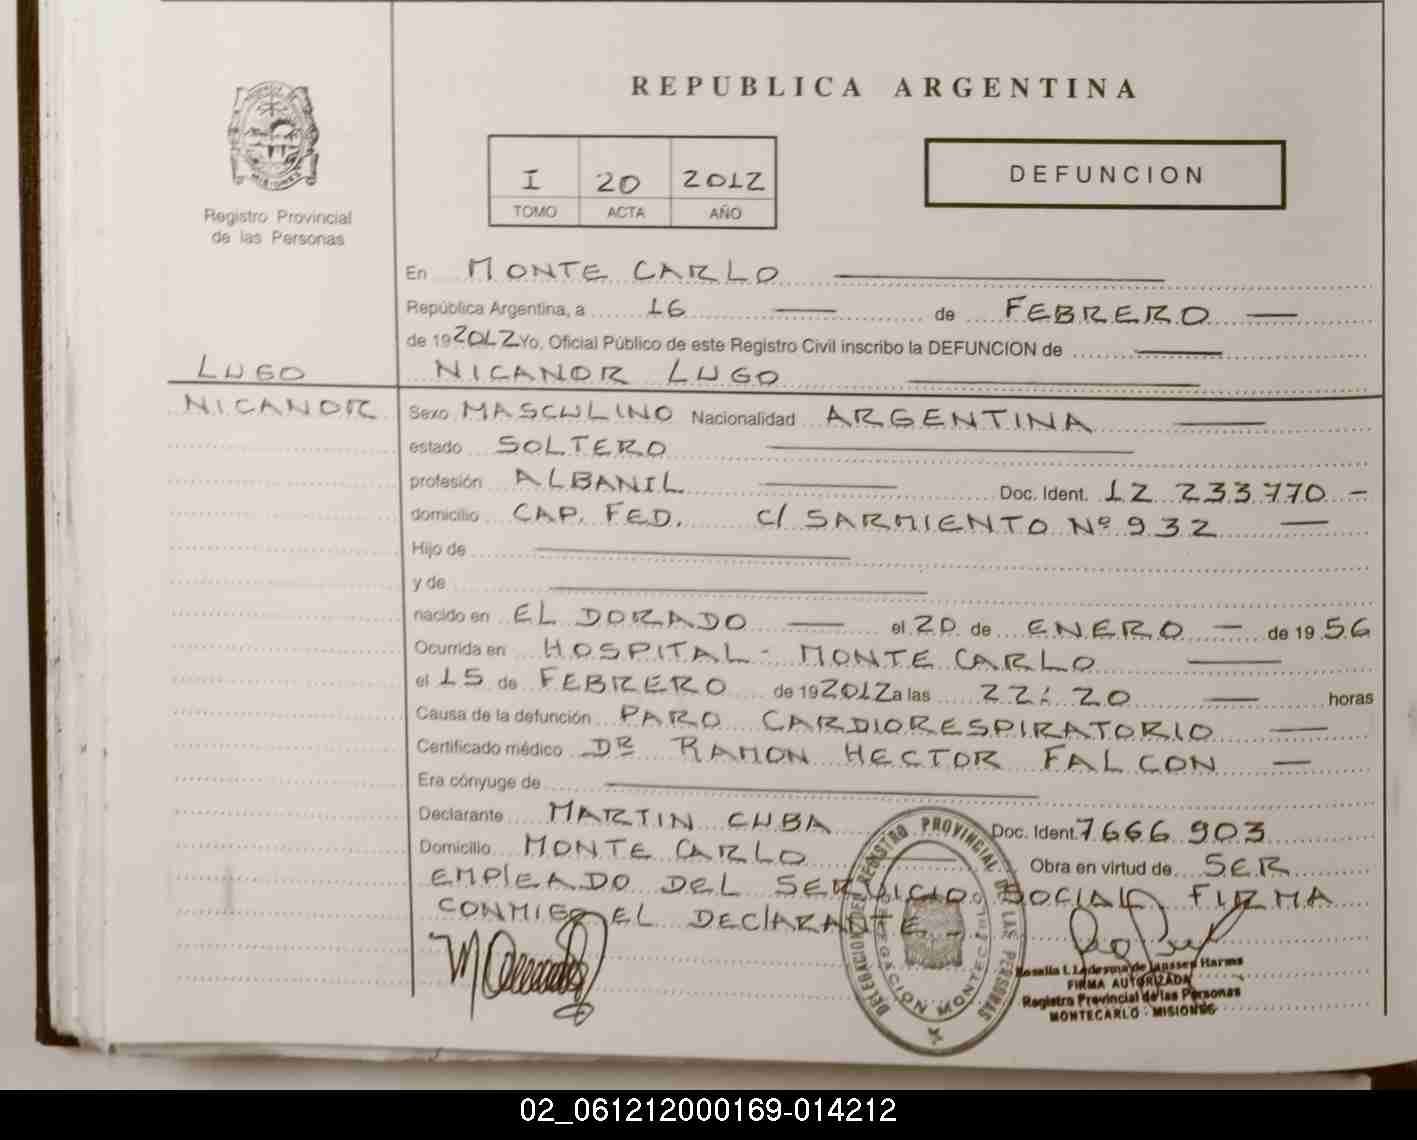 REPUBLICA ARGENTINA
MISIONES
Registro Provincial
de las Personas
I 20 2012
TOMO ACTA AÑO
DEFUNCION
En MONTE CARLO
República Argentina, a 16 de FEBRERO
de 192012 Yo, Oficial Público de este Registro Civil inscribo la DEFUNCION de
LUGO
NICANOR
NICANOR LUGO
Sexo MASCULINO Nacionalidad ARGENTINA
estado SOLTERO
profesión ALBANIL Doc. Ident. 12 233770 -
domicilio CAP. FED. C/ SARMIENTO Nº 932
Hijo de
y de
nacido en EL DORADO el 20 de ENERO - de 19 56
Ocurrida en HOSPITAL - MONTE CARLO
el 15 de FEBRERO de 192012 a las 22:20 horas
Causa de la defunción PARO CARDIORESPIRATORIO
Certificado médico DR RAMON HECTOR FALCON
Era cónyuge de
Declarante MARTIN CUBA Doc. Ident. 7666 903
Domicilio MONTE CARLO Obra en virtud de SER
EMPLEADO DEL SERVICIO SOCIAL FIRMA
CONMIGO EL DECLARANTE -
DELEGACION DEL REGISTRO PROVINCIAL DE LAS PERSONAS
DELEGACION MONTECARLO
Rosalia I. Ledesma de Janssen Harms
FIRMA AUTORIZADA
Registro Provincial de las Personas
MONTECARLO - MISIONES
02_061212000169-014212